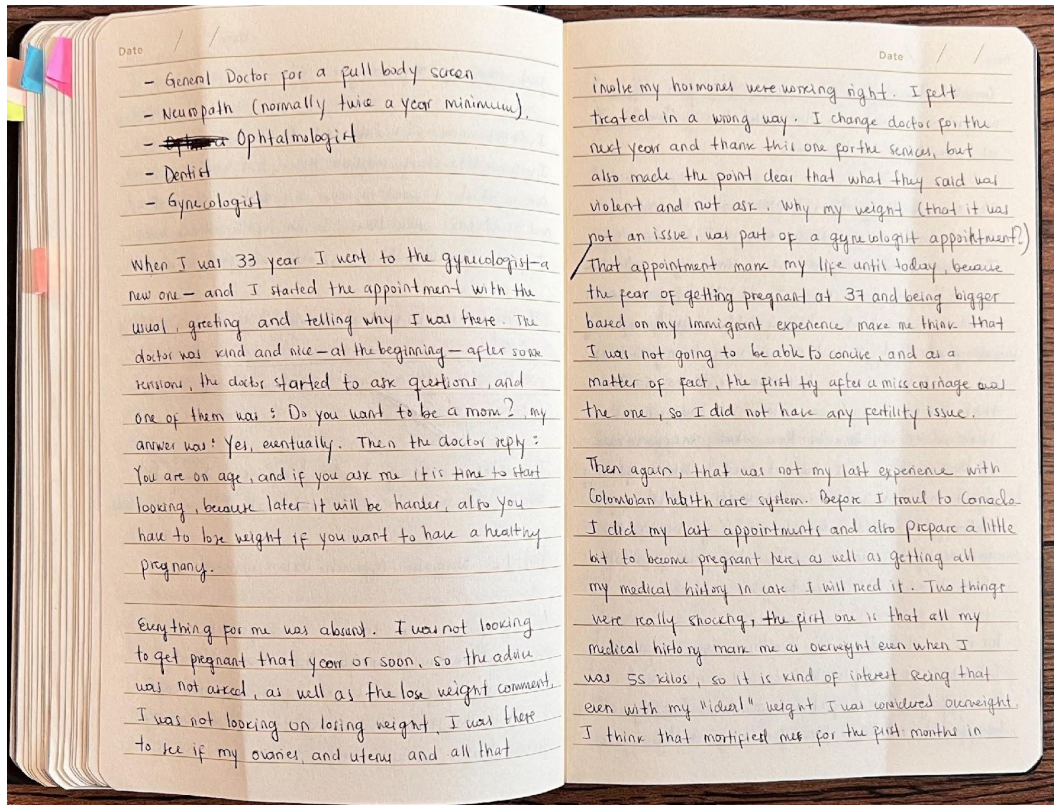 Date / /
- General Doctor for a full body screen
- Neuropath (normally twice a year minimum).
- Ophtalmologist
- Dentist
- Gynecologist
When I was 33 year I went to the gynecologist-a
new one- and I started the appointment with the
usual, greeting and telling why I was there. The
doctor was kind and nice-at the beginning- after some
tensions, the doctor started to ask questions, and
one of them was: Do you want to be a mom?, my
answer was: Yes, eventually. Then the doctor reply:
You are on age, and if you ask me it is time to start
looking, because later it will be harder, also you
have to lose weight if you want to have a healthy
pregnany.
Everything for me was absurd. I was not looking
to get pregnant that year or soon, so the advice
was not asked, as well as the lose weight comment,
I was not looking on losing weight. I was there
to see if my ovaries, and uterus and all that
Date / /
involve my hormones were working right. I felt
treated in a wrong way. I change doctor for the
next year and thank this one for the services, but
also made the point clear that what they said was
violent and not ask. Why my weight (that it was
not an issue, was part of a gynecologist appointment?)
That appointment mark my life until today, because
the fear of getting pregnant at 37 and being bigger
based on my Immigrant experience make me think that
I was not going to be able to concive, and as a
matter of fact, the first try after a misscarriage was
the one, so I did not have any fertility issue.
Then again, that was not my last experience with
Colombian health care system. Before I travel to Canada
I did my last appointments and also prepare a little
bit to become pregnant here, as well as getting all
my medical history in case I will need it. Two things
were really shocking, the first one is that all my
medical history mark me as overweight even when I
was 55 kilos, so it is kind of interest seeing that
even with my "ideal" weight I was considered overweight.
I think that mortified me for the first months in